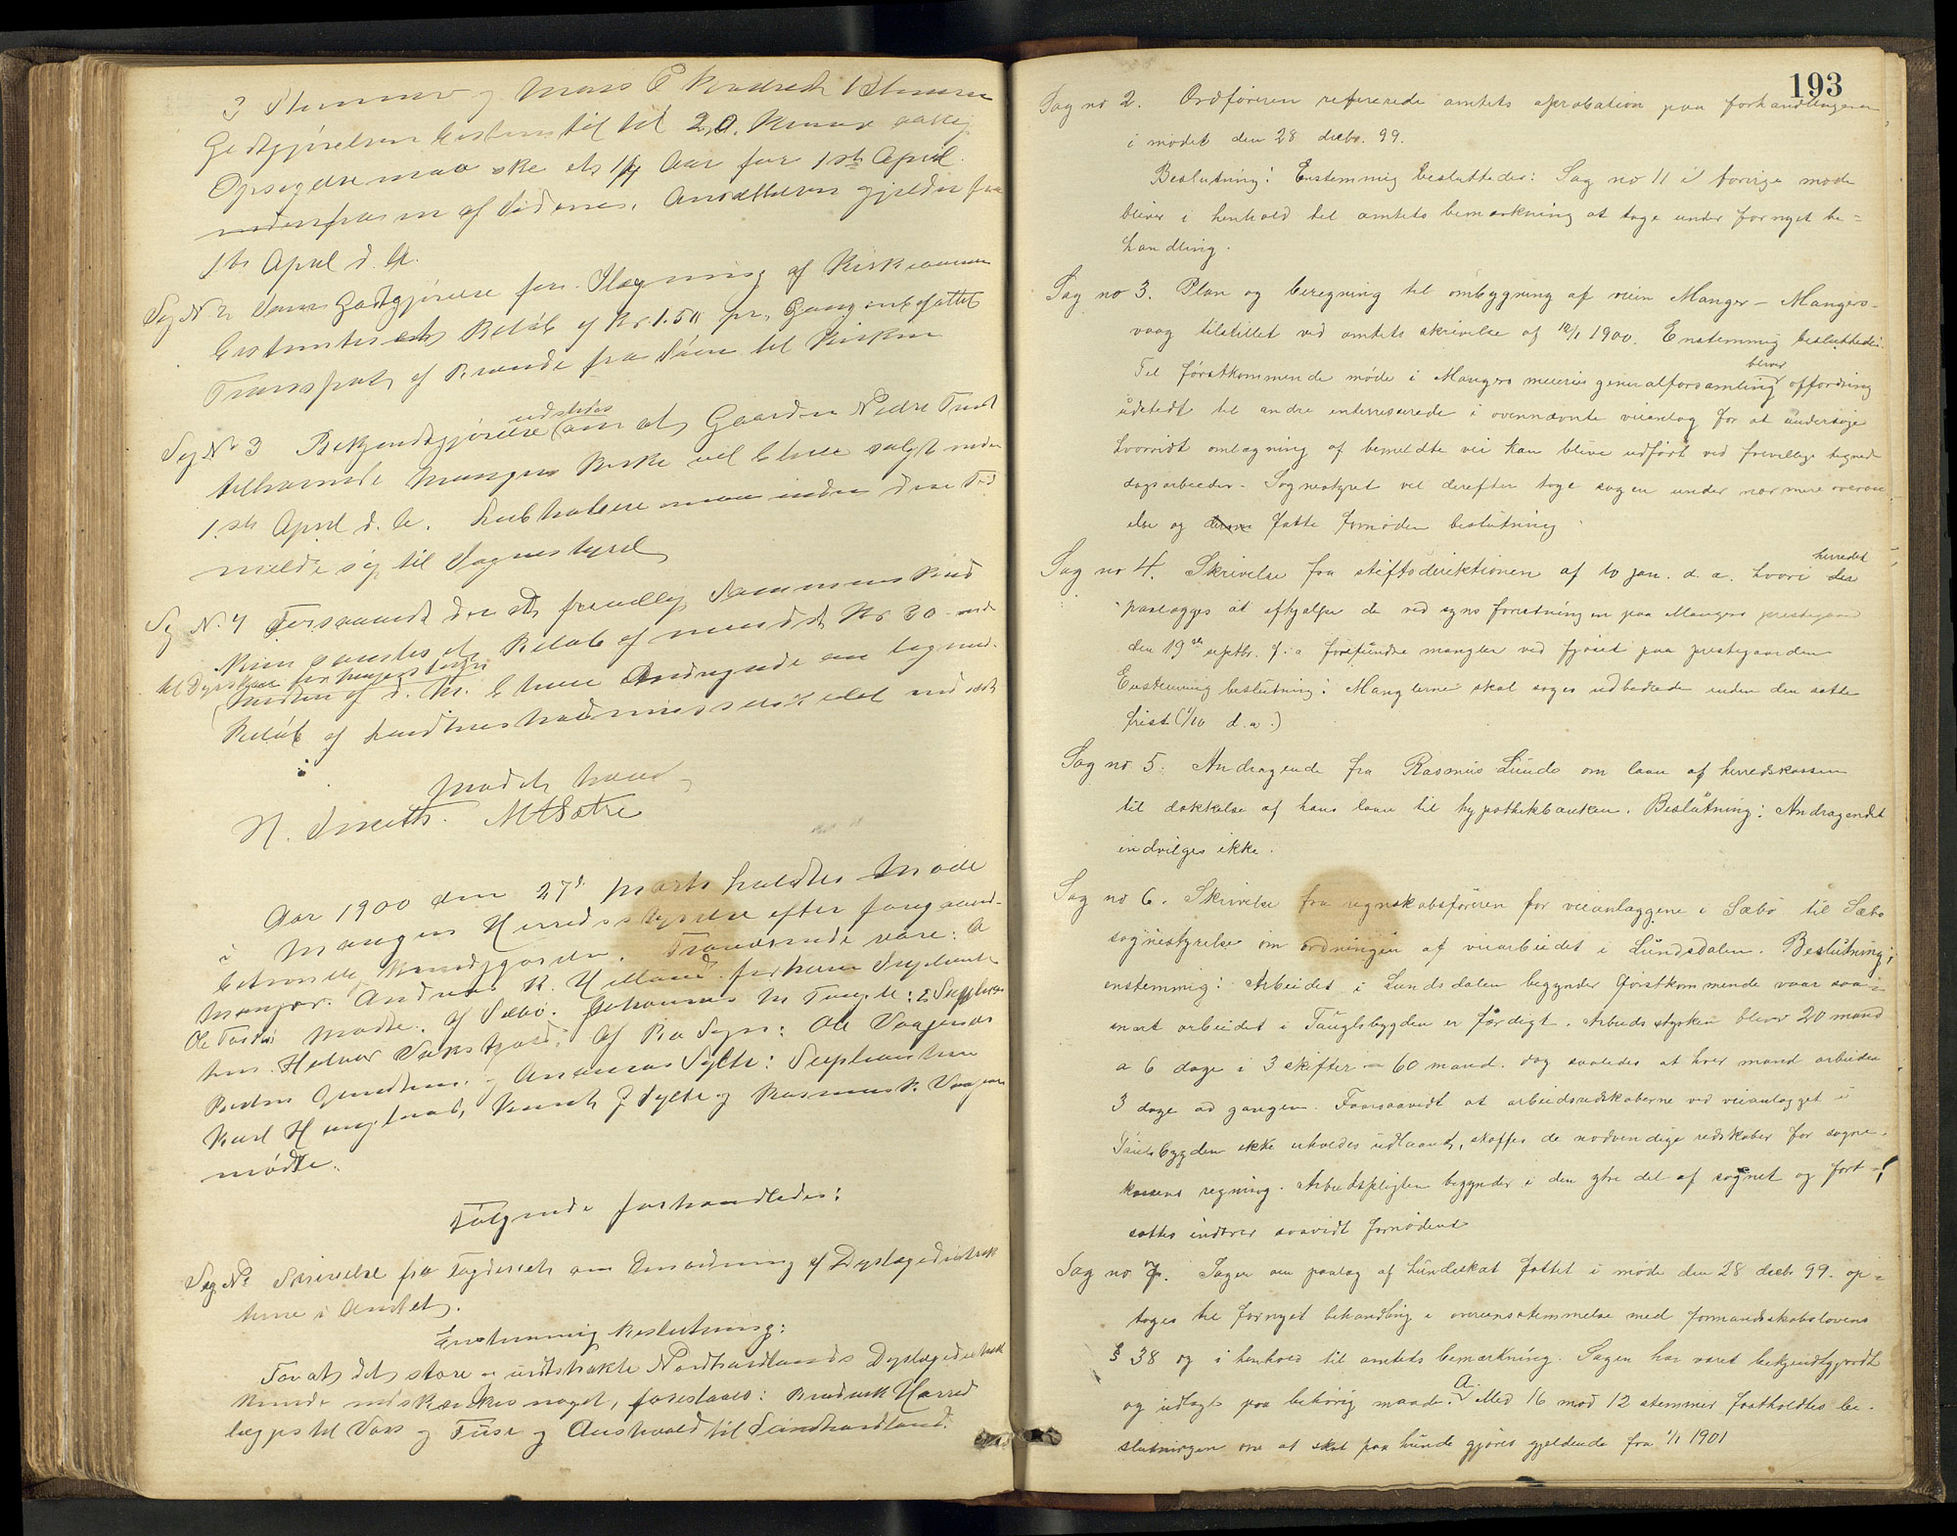 3 Stemmer og Mons P Kvadresh 1 Stemme
Godtgjørelsen bestemtes til 20 Kroner aarlig
Opsigelse maa ske et 1/4 Aar før 1ste April
af Siderne. Ansættelsen gjelder fra
1ste April d. A.
Sag N. 2 Som Godtgjørelse for Slagning af Kirkerommen
bestemtes et Beløb af Kr 1.50 pr. Gang indbefattet
Transport af Brænde fra Søen til Kirken
udstedes
Sag No 3 Bekjendtgjørelse om at Gaarden Nedre
tilhørende Mangers Kirke vil blive solgt inden
1ste April d. A. Liebhabere maa inden den Tid
melde sig til Sognestyret
Sag N. 4 Forsaavidt der ved frivillig Sammenskud
kan samles et Beløb af mindst Kr 30 inden
til Dyrskuer for Mangers Sogn
Enden af d. M. blive Andragende om lignende
Beløb af Landhusholdningsselskabet indsendt
Mødet hævet
N. Smith. M H Sætre
Aar 1900 den 27d Marts holdtes Møde
i Mangers Herredsstyrelse efter foregaaende
betimelig Kundgjøren. Fraværende vare: A
Manger. Andreas K. Helland. for ham Suppleant
Ole Toska mødte. af Sæbø: Johannes M : 2 Supplean
ten Halvor af Bø Sogn: Ole Vaagenes
og Andreas Sylte: Suppleanterne
Karl Haugland, Knut J Sylte og Rasmus K. Vaagenes
mødte.
Følgende forhandledes:
Sag No 1 Skrivelse fra Fogderiet om Omordning af Dyrlægedistrik
terne i Amtet.
Enstemmig Beslutning:
For at det store og udstrakte Nordhordlands Dyrlægedistrikt
kunde indskrænkes noget, foreslaaes: Bruvik Herred
lægges til Voss og Fuse og Austevold til Søndhordland.
193
Sag no 2. Ordføreren refererede amtets aprobation paa forhandlingerne
i mødet den 28 decbr. 99.
Beslutning: Enstemmig besluttedes: Sag no 11 i forrige møde
bliver i henhold til amtets bemærkning at tage under fornyet be=
handling.
Sag no 3. Plan og beregning til ombygning af veien Manger – Mangers-
vaag tilstillet ved amtets skrivelse af 12/1 1900. Enstemmig besluttedes:
bliver
Til førstkommende møde i Mangers meieries generalforsamling opfordring
udstedt til andre interesserede i ovennævnte veianlæg for at undersøge
hvorvidt omlægning af bemeldte vei kan blive udført ved frivillige
dagsarbeider. Sognestyret vil derefter tage sagen under nærmere overvei
else og fatte fornøden beslutning.
herredet
Sag no 4. Skrivelse fra stiftsdirektionen af 10 jan. d. a. hvori
paalægges at afhjælpe de ved syns forretningen paa Mangers prestegaard
den 19de septbr. f. a. forefundne mangler ved fjøset paa prestegaarden
Enstemmig beslutning: Manglerne skal søges udbedrede inden den satte
frist (1/10 d. a.)
Sag no 5. Andragende fra Rasmus Lunde om laan af herredskassen
til dækkelse af hans laan til hypothekbanken. Beslutning: Andragendet
indvilges ikke.
Sag no 6. Skrivelse fra regnskabsføreren for veianlæggene i Sæbø til Sæbø
sognestyrelse om ordningen af veiarbeidet i Lundsdalen. Beslutning;
enstemmig: Arbeidet i Lundsdalen begynder førstkommende vaar saa=
snart arbeidet i Tauglebygden er færdigt. Arbeidsstyrken bliver 20 mand
a 6 dage i 3 skifter = 60 mand. dog saaledes at hver mand arbeider
3 dage ad gangen. Forsaavidt at arbeidsredskaberne ved veianlægget i
ikke erholdes udlaant, skaffes de nødvendige redskaber for sogne-
kassens regning. Arbeidspligten begynder i den ytre del af sognet og fort-
sættes indover saavidt fornødent
Sag no 7. Sagen om paalæg af hundeskat fattet i møde den 28 decb. 99. op=
tages til fornyet behandling i overensstemmelse med formandskabslovens
§ 38 og i henhold til amtets bemærkning. Sagen har været bekjendtgjordt
og udlagt paa behørig maade. Med 16 mod 12 stemmer fastholdtes be-
slutningen om at skat paa hunde gjøres gjeldende fra 1/1 1901